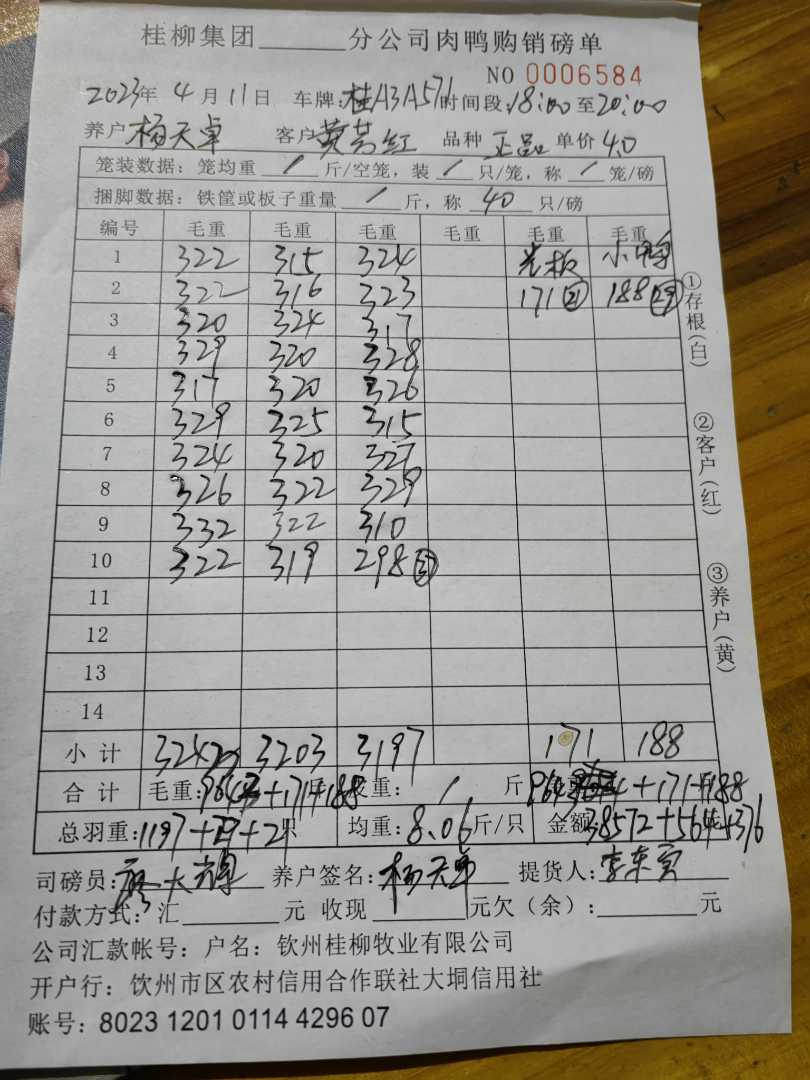 桂柳集团______分公司肉鸭购销磅单
NO 0006584
2023年 4月11日 车牌:桂A3A576时间段:18:00至20:00
养户杨天卓 客户黄芸红 品种 正品 单价 4.0
笼装数据: 笼均重 / 斤/空笼, 装 / 只/笼, 称 / 笼/磅
捆脚数据: 铁筐或板子重量 / 斤, 称 40 只/磅
编号 毛重 毛重 毛重 毛重 毛重 毛重
1 322 315 324 光板 小鸭
2 322 316 323 171㉑ 188㉙
3 320 324 317
4 329 320 328
5 317 320 326
6 329 325 315
7 324 320 327
8 326 322 329
9 332 322 310
10 322 319 298㊲
11
12
13
14
小计 3242 3203 3197 171 188
合计 毛重: 9643+171+188 皮重: / 斤 964 +171+188
总羽重: 1197+29+21只 均重: 8.06斤/只 金额 38572+564+376
司磅员: 廖大 养户签名: 杨天卓 提货人: 李东
付款方式: 汇______元 收现______元欠(余):______元
公司汇款帐号: 户名: 钦州桂柳牧业有限公司
开户行: 饮州市区农村信用合作联社大垌信用社
账号: 8023 1201 0114 4296 07
①存根(白)
②客户(红)
③养户(黄)